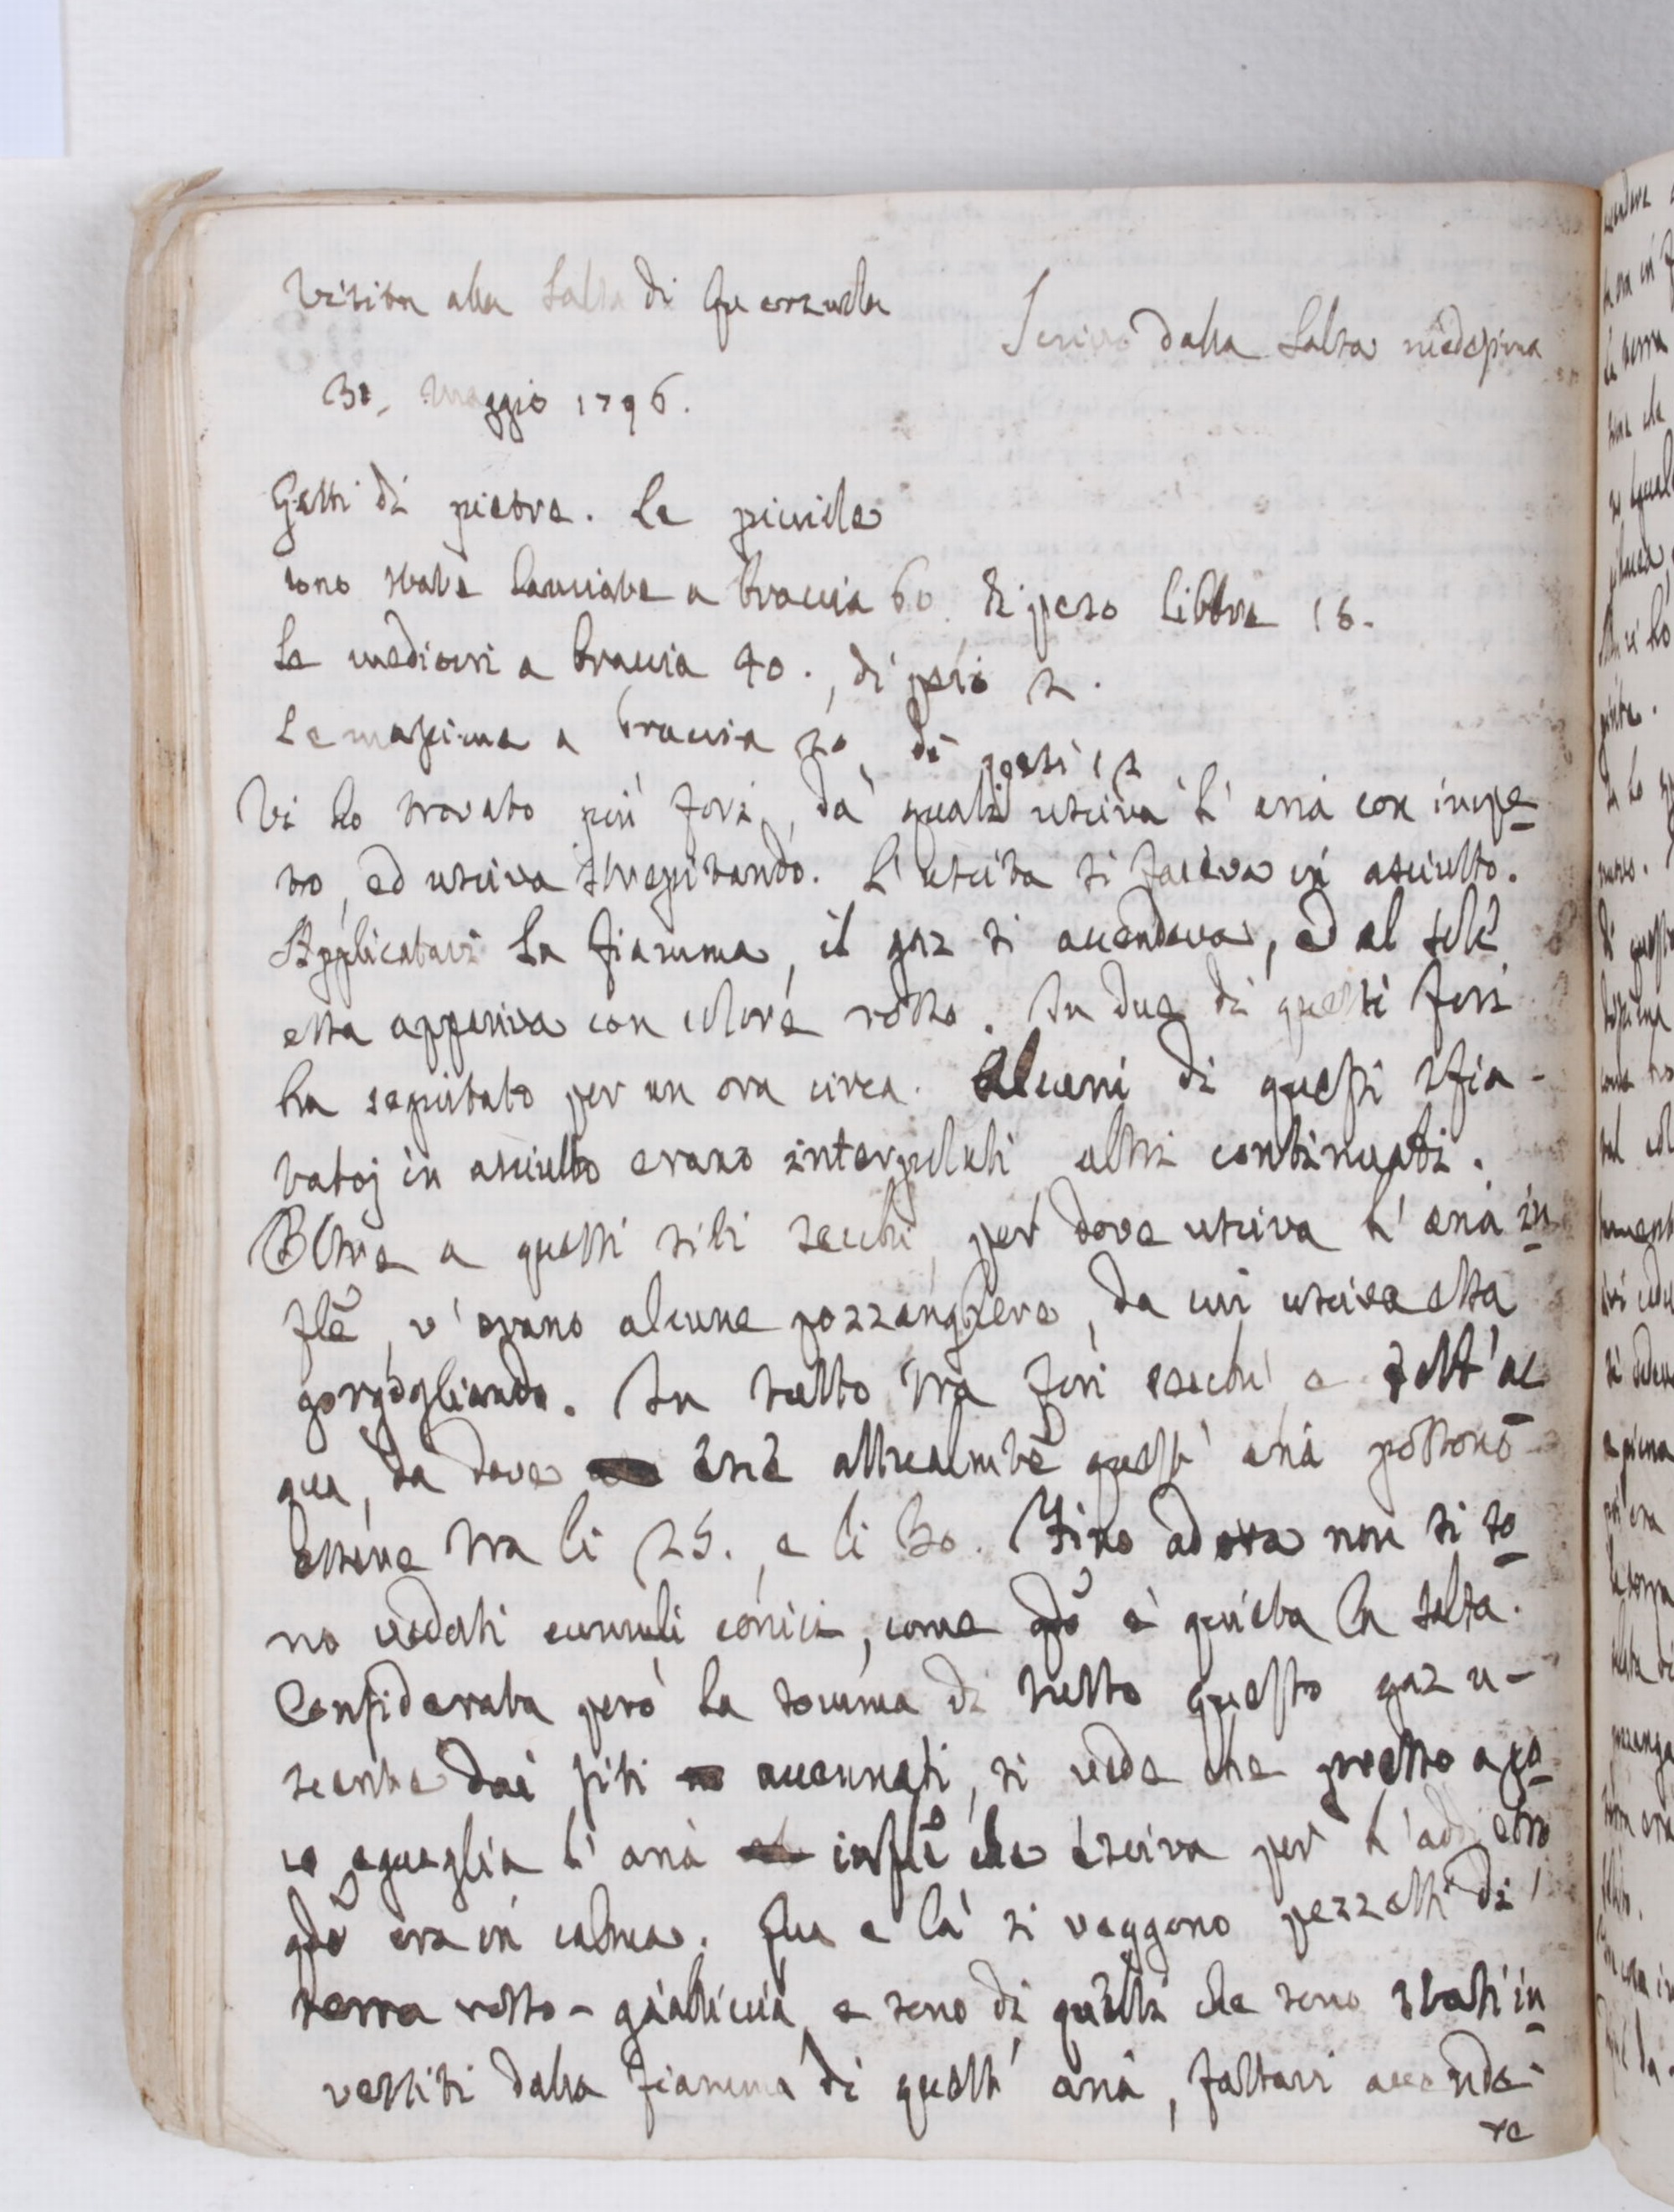 Visita alla Salsa di Querzuola
Scrivo dalla Salsa medesima
31. Maggio 1796.
Getti di pietre. Le piccile
sono state lanciate a braccia 60 di peso libbre 18.
Le mediocri a braccia 40., di più 2.
Le massime a braccia 20, di pesi 12
Vi ho trovato più fori, da' quali usciva l'aria con impe
to, ed usciva strepitando. L'uscita si faceva in asciutto.
Applicatavi la fiamma, il gaz si accendeva, ed al sole
essa appariva con colore rosso. In due di questi fori
ha seguitato per un ora circa. Alcuni di questi sfia-
tatoj in asciutto erano interpolati altri continuati.
Oltre a questi siti secchi, per dove usciva l'aria in
fle, v'erano alcune pozzanghere, da cui usciva essa
gorgogliando. In tutto tra fori secchi, e sott'ac
qua, da dove esce attualmte quest'aria possono
essere tra li 25. e li 30. Fino ad ora non si so
no veduti cumuli conici, come qdo è quieta la salsa.
Considerata però la somma di tutto questo gaz u-
scente dai siti accennati, si vede che presso a po
co eguaglia l'aria infle che esciva per l'addietro
qdo era in calma. Qua e là si veggono pezzetti di
terra rosso-gialliccia, e sono di quelli che sono stati in
vestiti dalla fiamma di quest'aria, fattavi accende
re